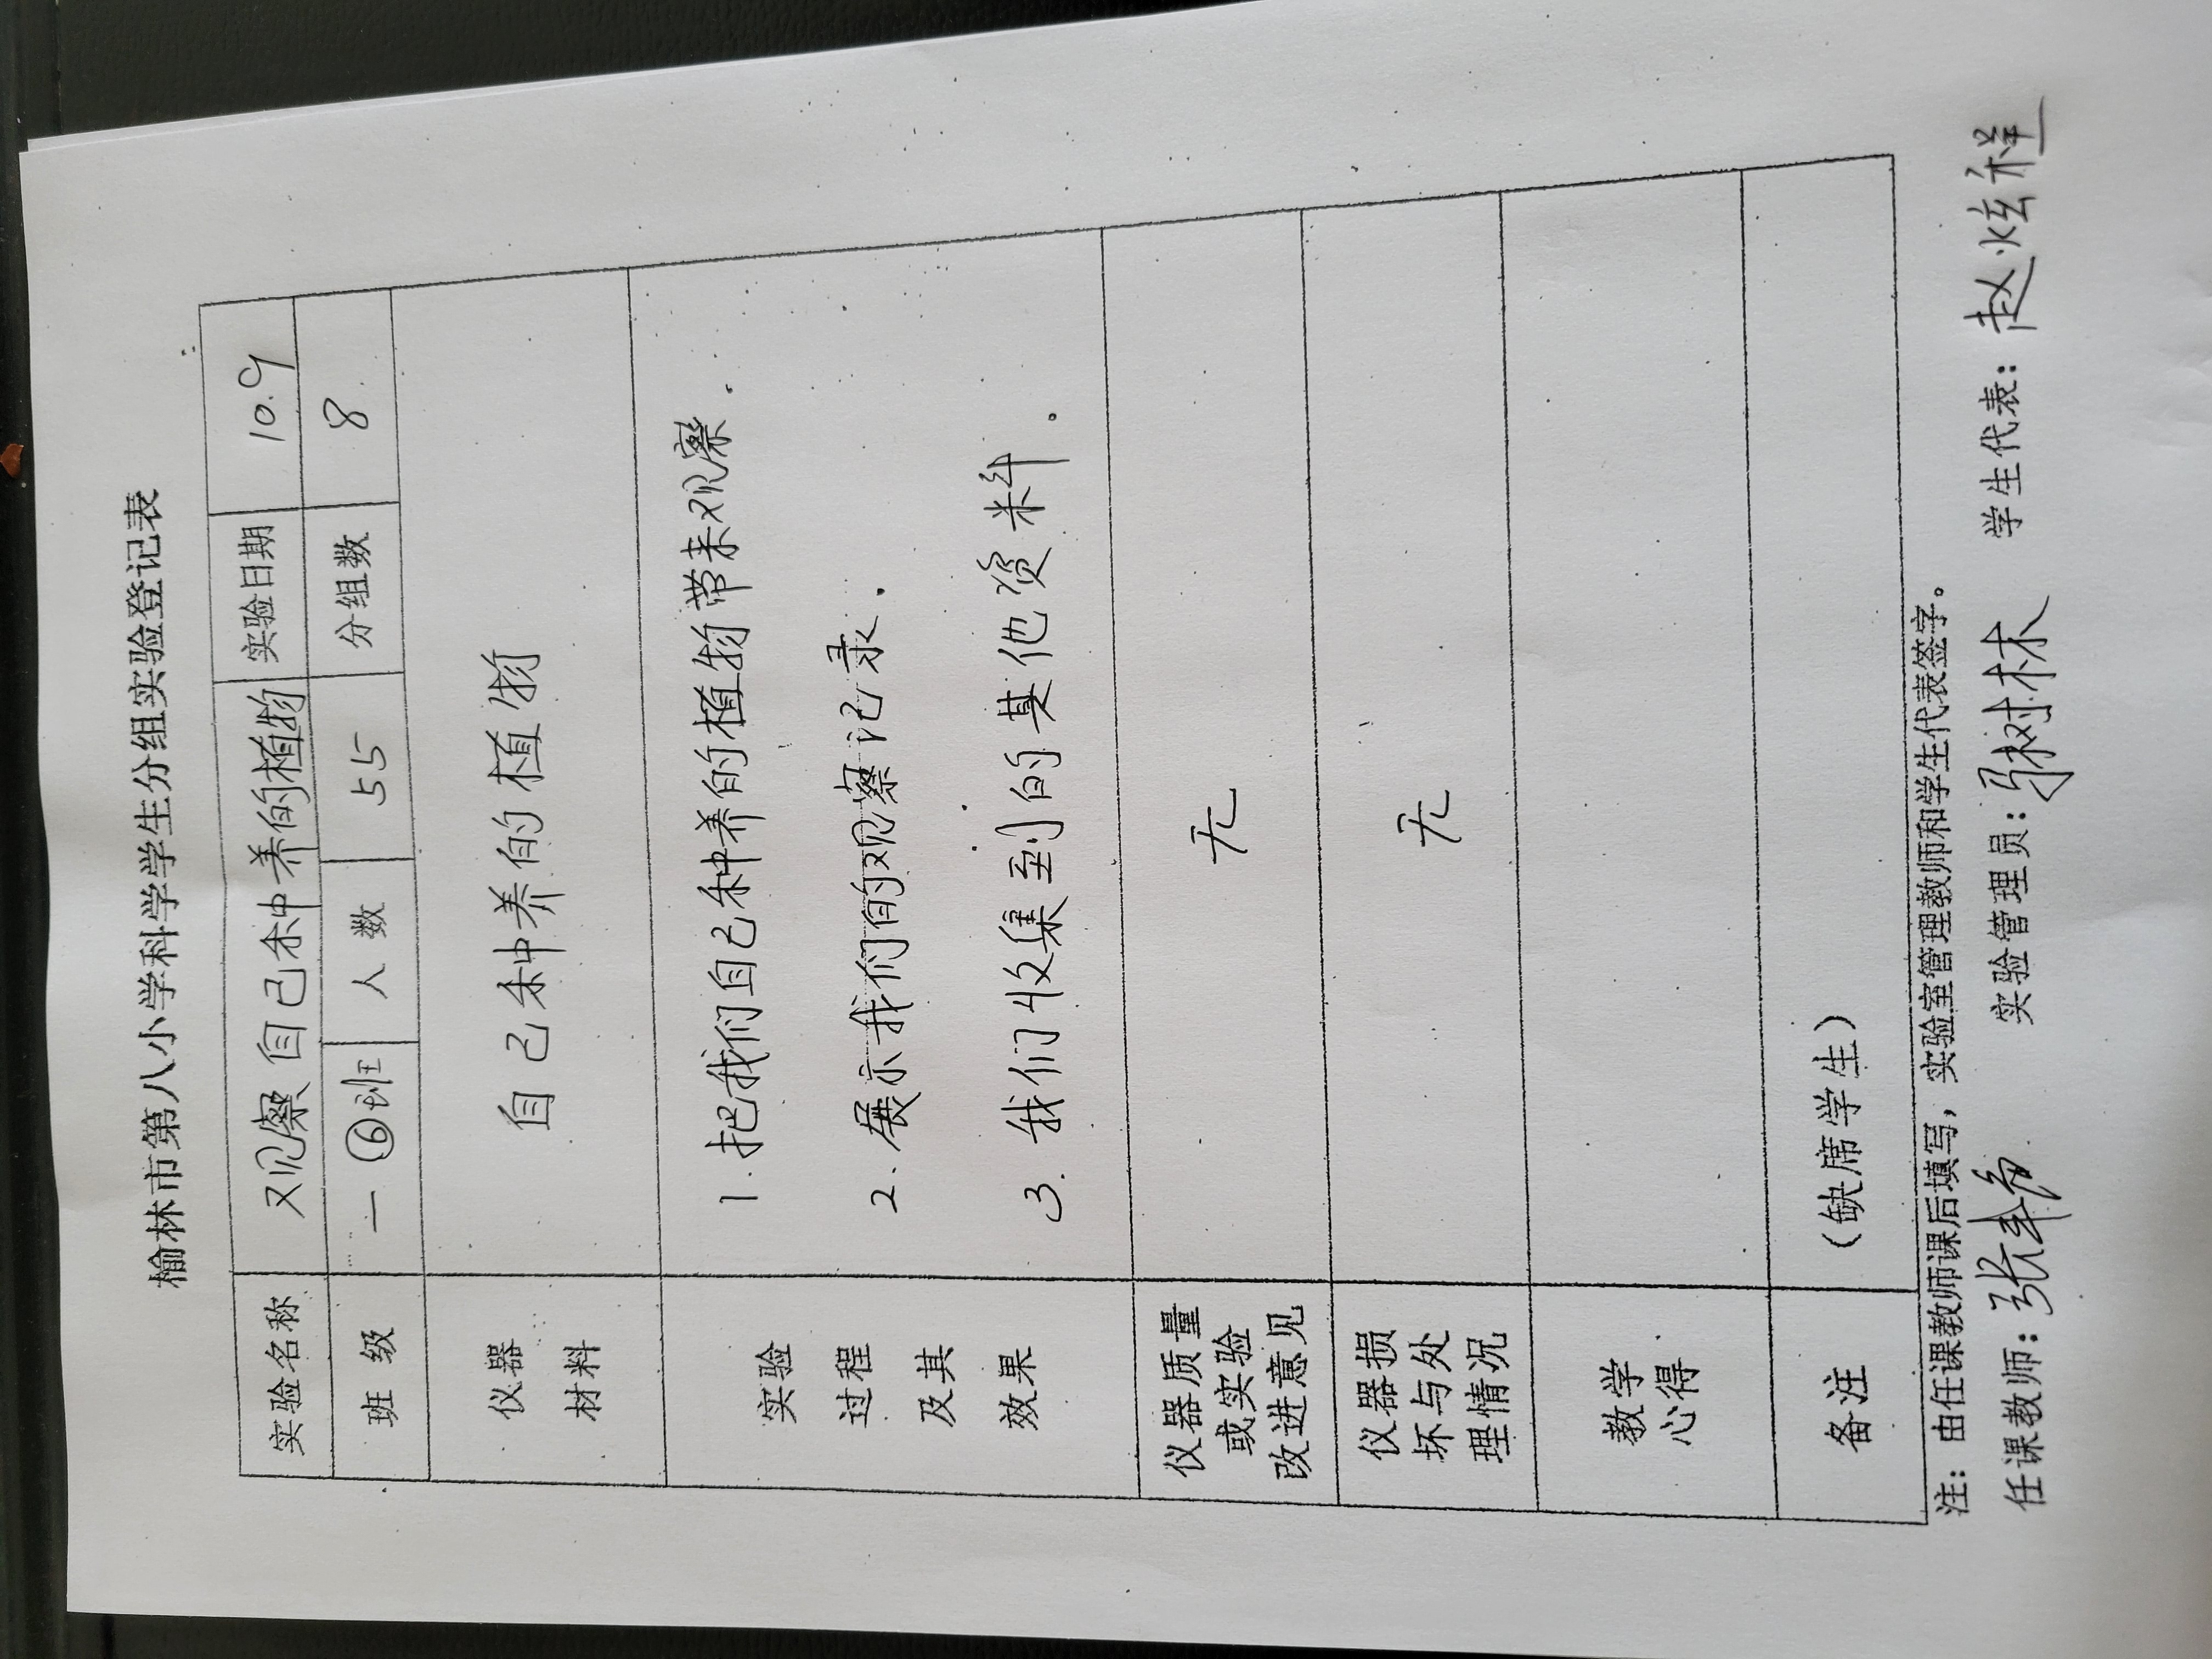 榆林市第八小学科学学生分组实验登记表
实验名称 观察自己种养的植物 实验日期 10.9
班级 一⑥班 人数 55 分组数 8
仪器
材料
自己种养的植物
实验
过程
及其
效果
1.把我们自己种养的植物带来观察.
2.展示我们的观察记录.
3.我们收集到的其他资料.
仪器质量
或实验
改进意见
无
仪器损
坏与处
理情况
无
教学
心得
备注 (缺席学生)
注：由任课教师课后填写，实验室管理教师和学生代表签字。
任课教师：张 实验管理员：树林 学生代表：赵炫祥